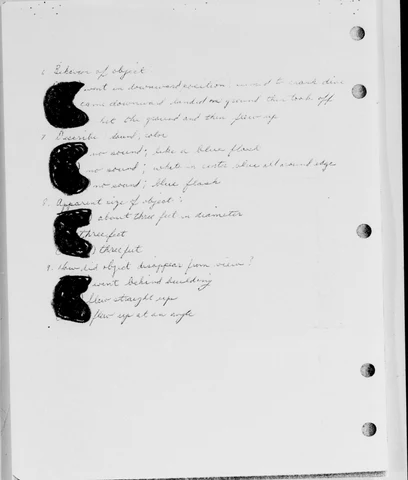 6. Behavior of object
went in downward motion: seemed to crash dive
came downward landed on ground then took off
hit the ground and then flew up
7. Describe sound, color
no sound; like a blue flash
no sound; white in center blue all around edge
no sound; blue flash
8. Apparent size of object:
about three feet in diameter
three feet
) three feet
9. How did object disappear from view?
went behind building
flew straight up
flew up at an angle